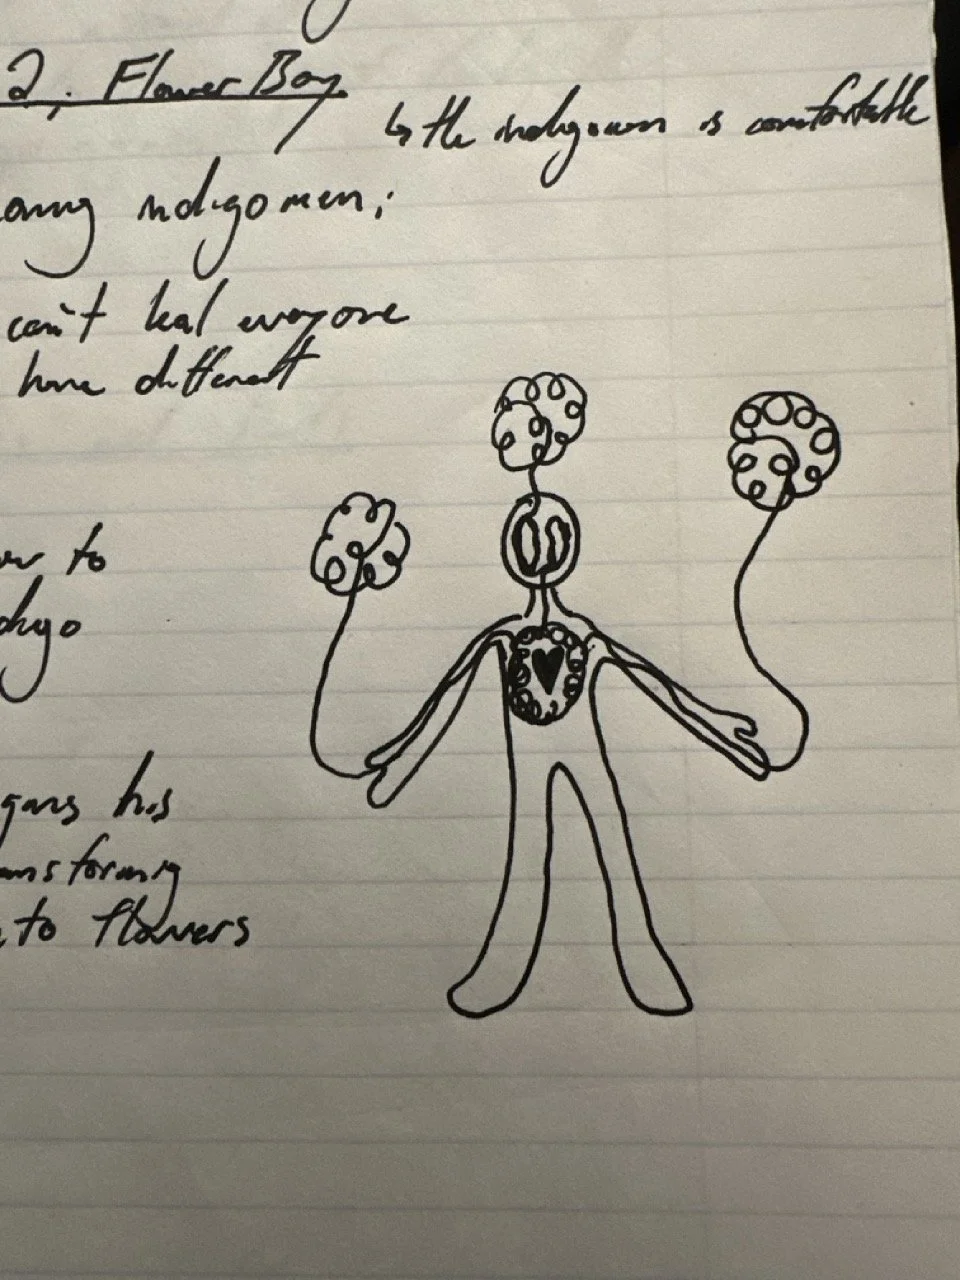 2. Flower Boy
↳ the indigoman is comfortable
young indigomen;
can't heal everyone
have different
to
indigo
his
transforming
to flowers